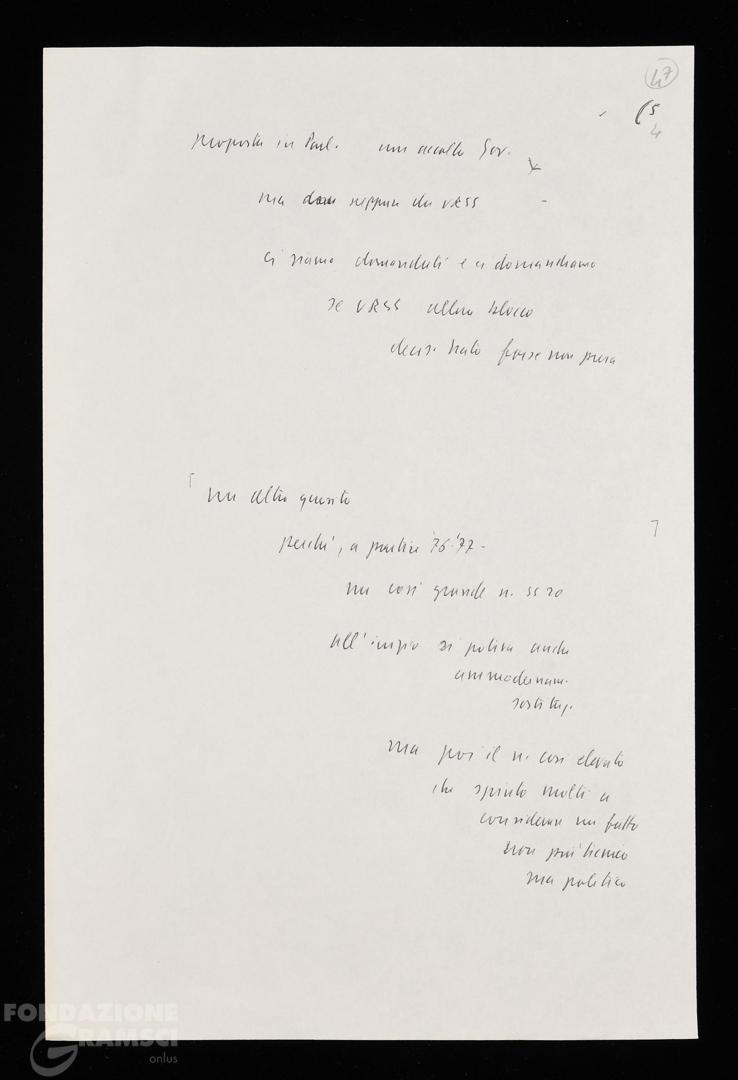 47
5
4
proposta in Parl. non accolta Gov.
ma neppure da URSS -
ci siamo domandati e ci domandiamo
se URSS allora blocco
decis. Nato forse non presa
un altro quesito
perché, a partire '76-'77 -
un così grande n. SS 20
all'inizio si poteva anche
ammodernam.
sostituz.
ma poi il n. così elevato
che spinto molti a
considerare un fatto
non più tecnico
ma politico
FONDAZIONE
GRAMSCI
onlus